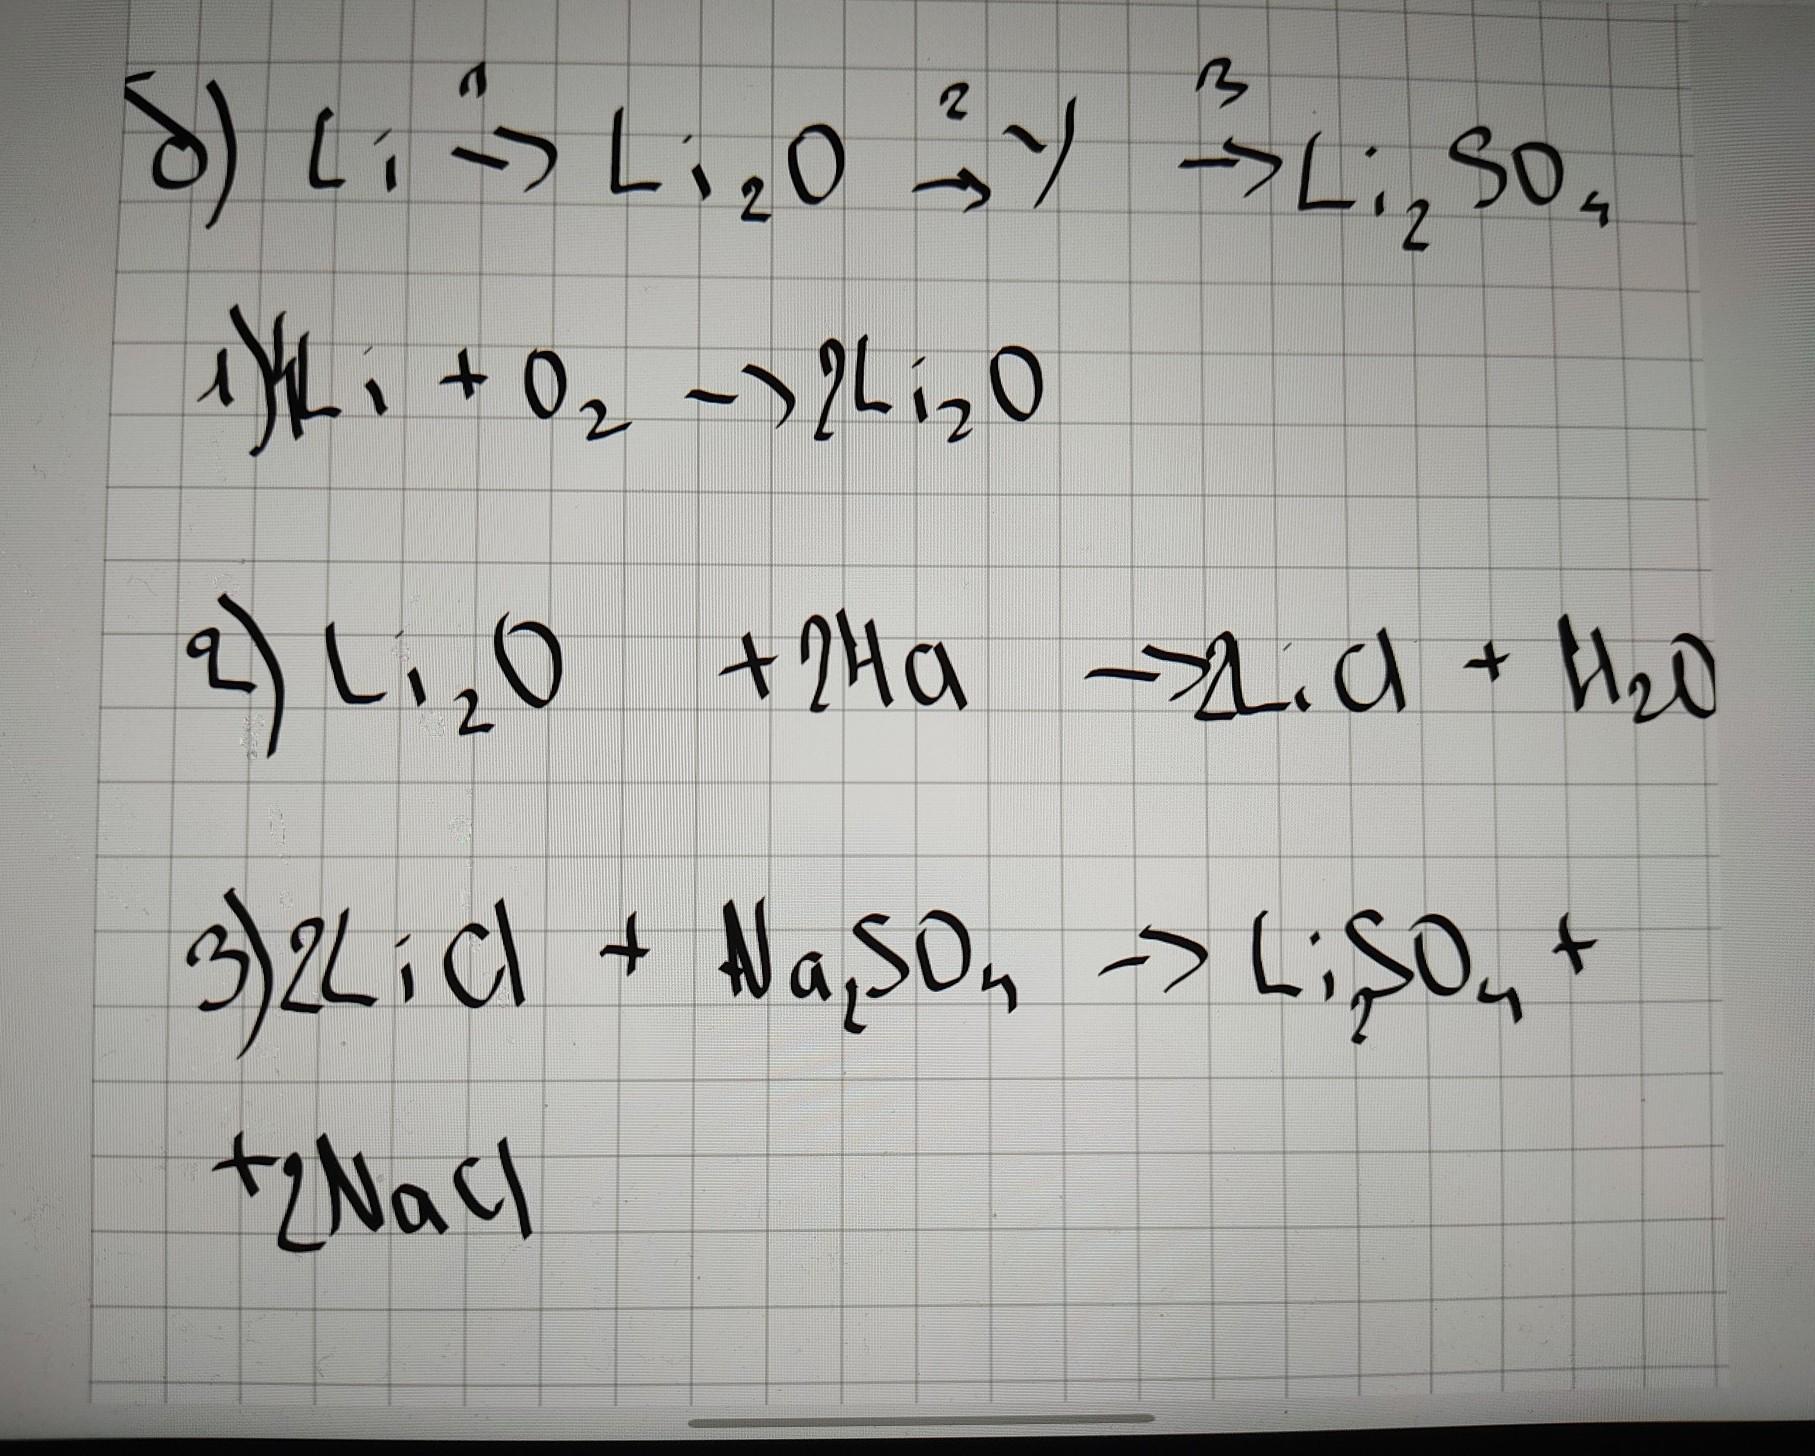 б) Li →¹ Li₂O →² Y →³ Li₂SO₄
1) 4Li + O₂ → 2Li₂O
2) Li₂O + 2HCl → 2LiCl + H₂O
3) 2LiCl + Na₂SO₄ → Li₂SO₄ +
+ 2NaCl